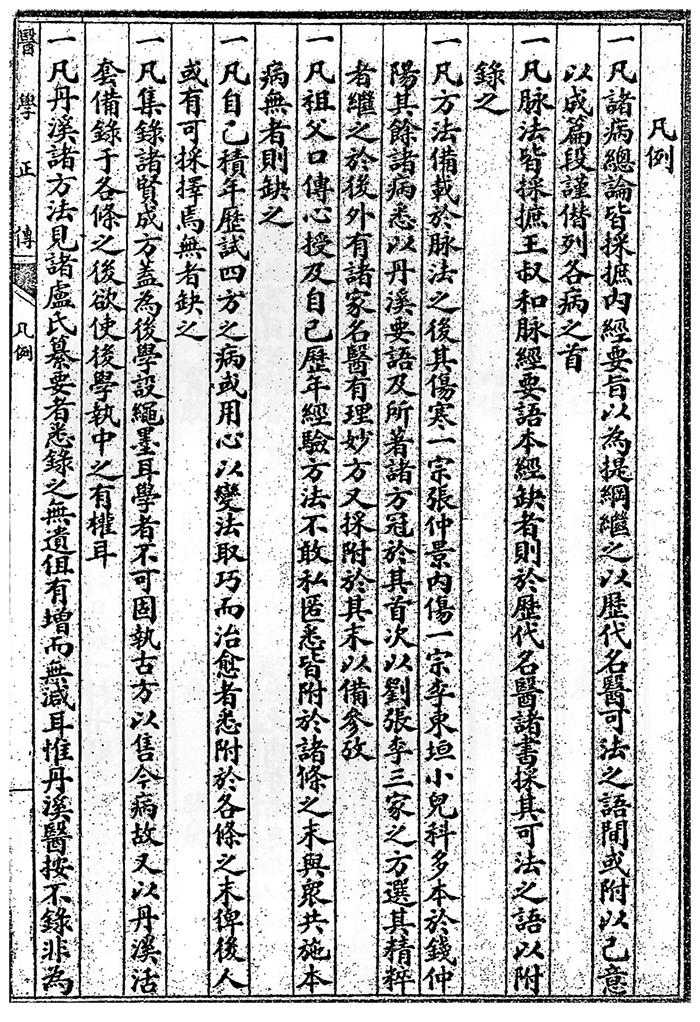 凡例
一凡諸病總論皆採摭內經要旨以為提綱繼之以歷代名醫可法之語間或附以己意
以成篇段謹僭列各病之首
一凡脉法皆採摭王叔和脉經要語本經缺者則於歷代名醫諸書採其可法之語以附
錄之
一凡方法備載於脉法之後其傷寒一宗張仲景內傷一宗李東垣小兒科多本於錢仲
陽其餘諸病悉以丹溪要語及所著諸方冠於其首次以劉張李三家之方選其精粹
者繼之於後外有諸家名醫有理妙方又採附於其末以備參攷
一凡祖父口傳心授及自己歷年經驗方法不敢私匿悉皆附於諸條之末與眾共施本
病無者則缺之
一凡自己積年歷試四方之病或用心以變法取巧而治愈者悉附於各條之末俾後人
或有可採擇焉無者缺之
一凡集錄諸賢成方蓋為後學設繩墨耳學者不可固執古方以售今病故又以丹溪活
套備錄于各條之後欲使後學執中之有權耳
一凡丹溪諸方法見諸盧氏纂要者悉錄之無遺但有增而無減耳惟丹溪醫按不錄非為
醫學正傳 凡例